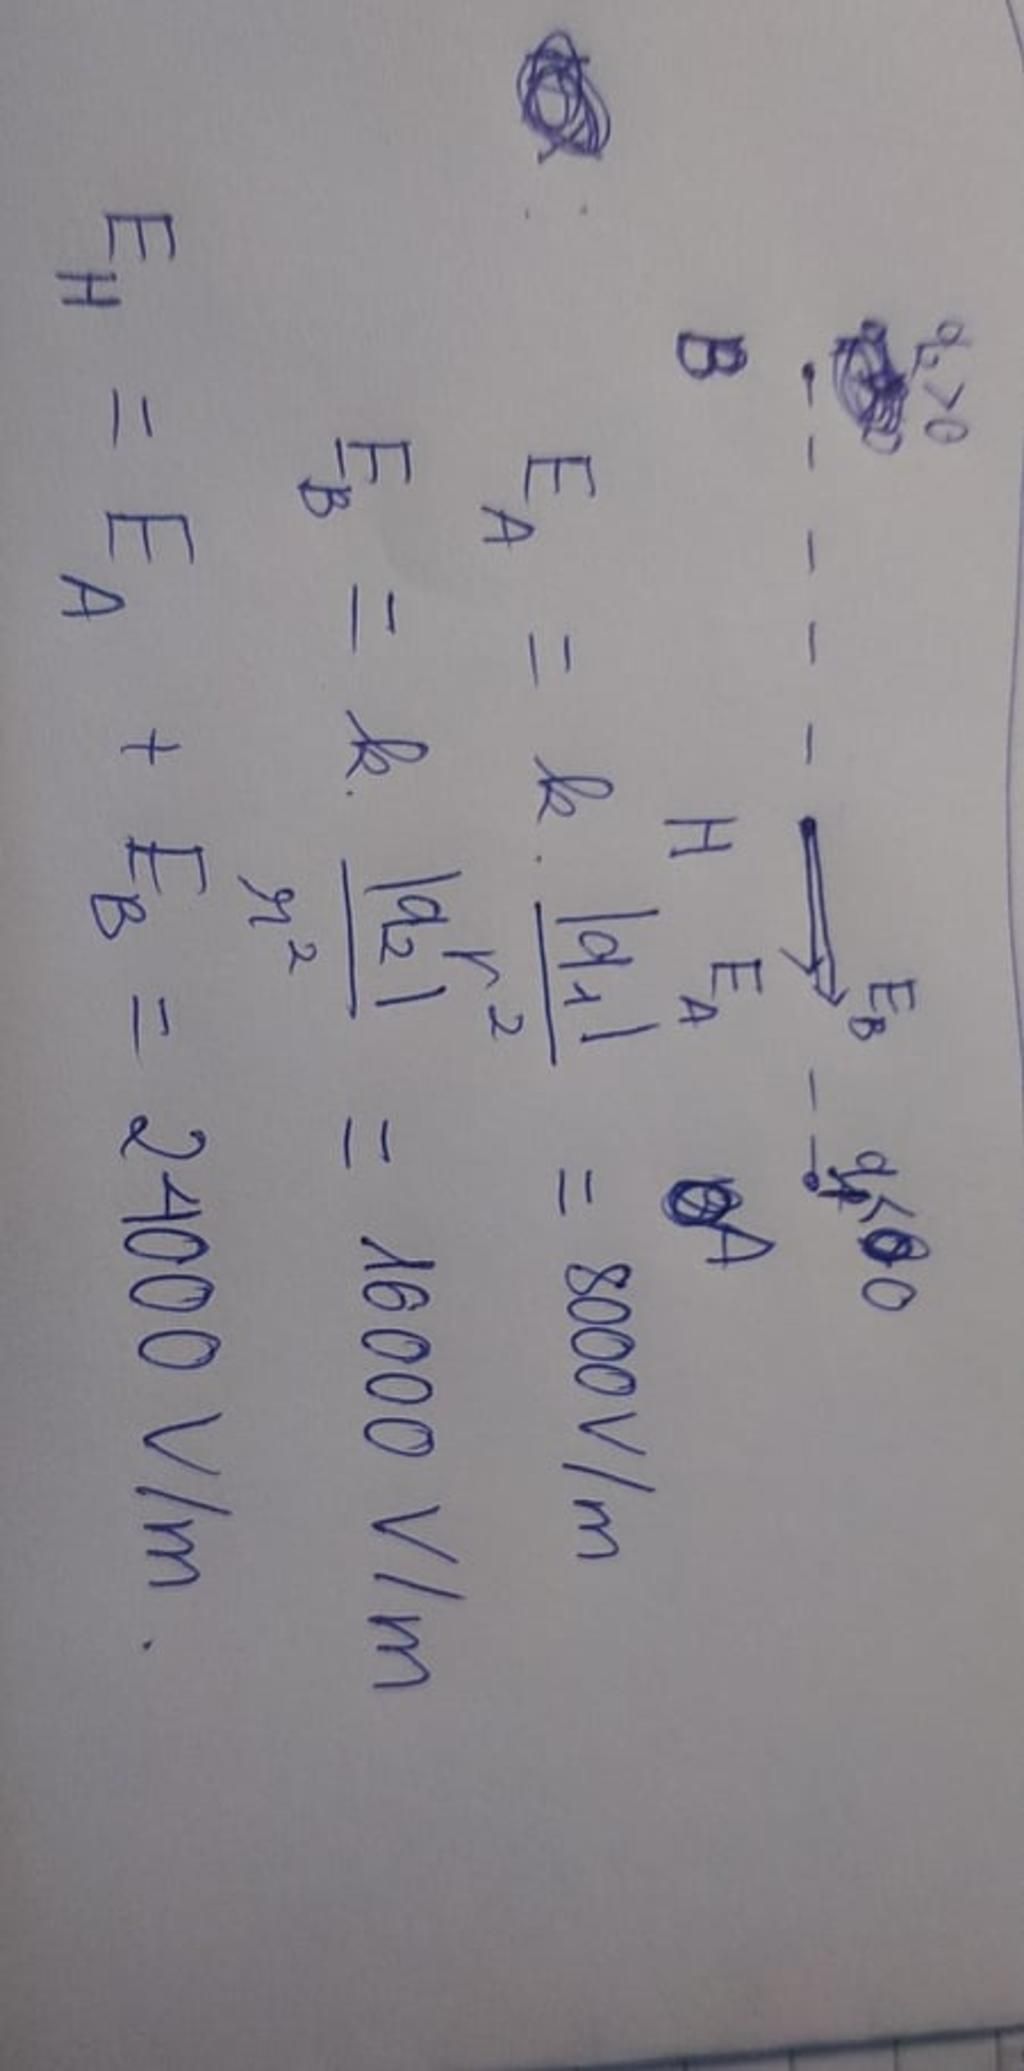 q₂>0 q₁<0
E_B
B H E_A A
E_A = k. |q₁| / r² = 8000V/m
E_B = k. |q₂| / r² = 16000 V/m
E_H = E_A + E_B = 24000 V/m.